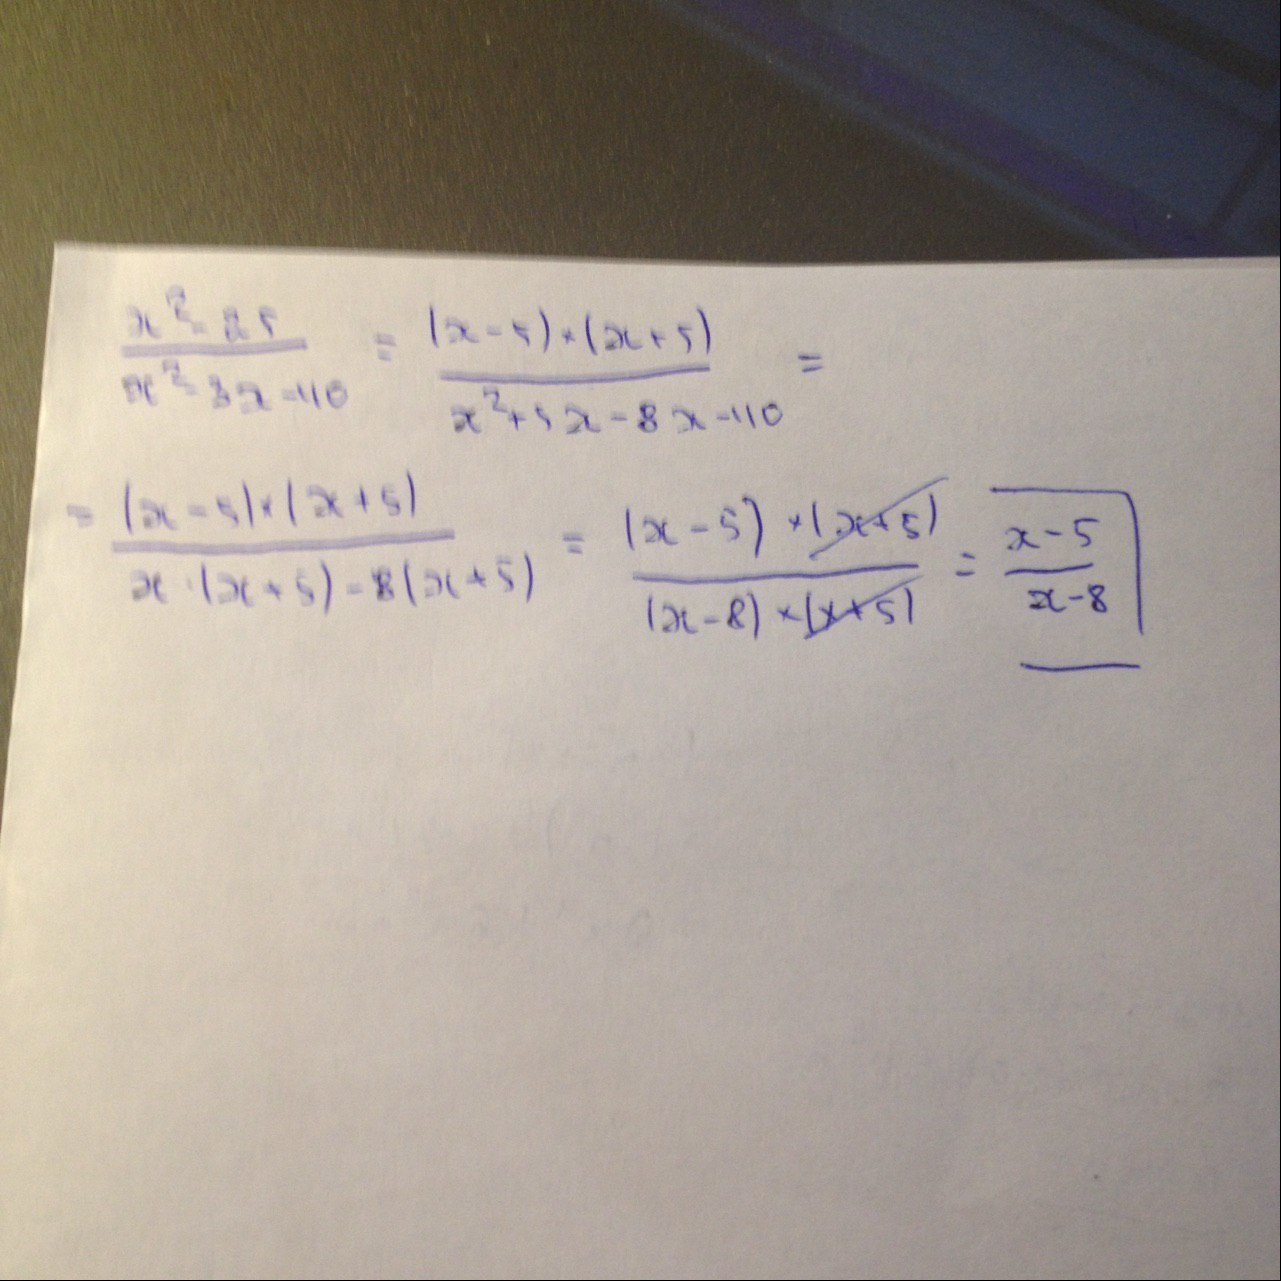 x² - 25 / x² - 3x - 40 = (x - 5) × (x + 5) / x² + 5x - 8x - 40 =
= (x - 5) × (x + 5) / x · (x + 5) - 8(x + 5) = (x - 5) × (x + 5) / (x - 8) × (x + 5) = x - 5 / x - 8